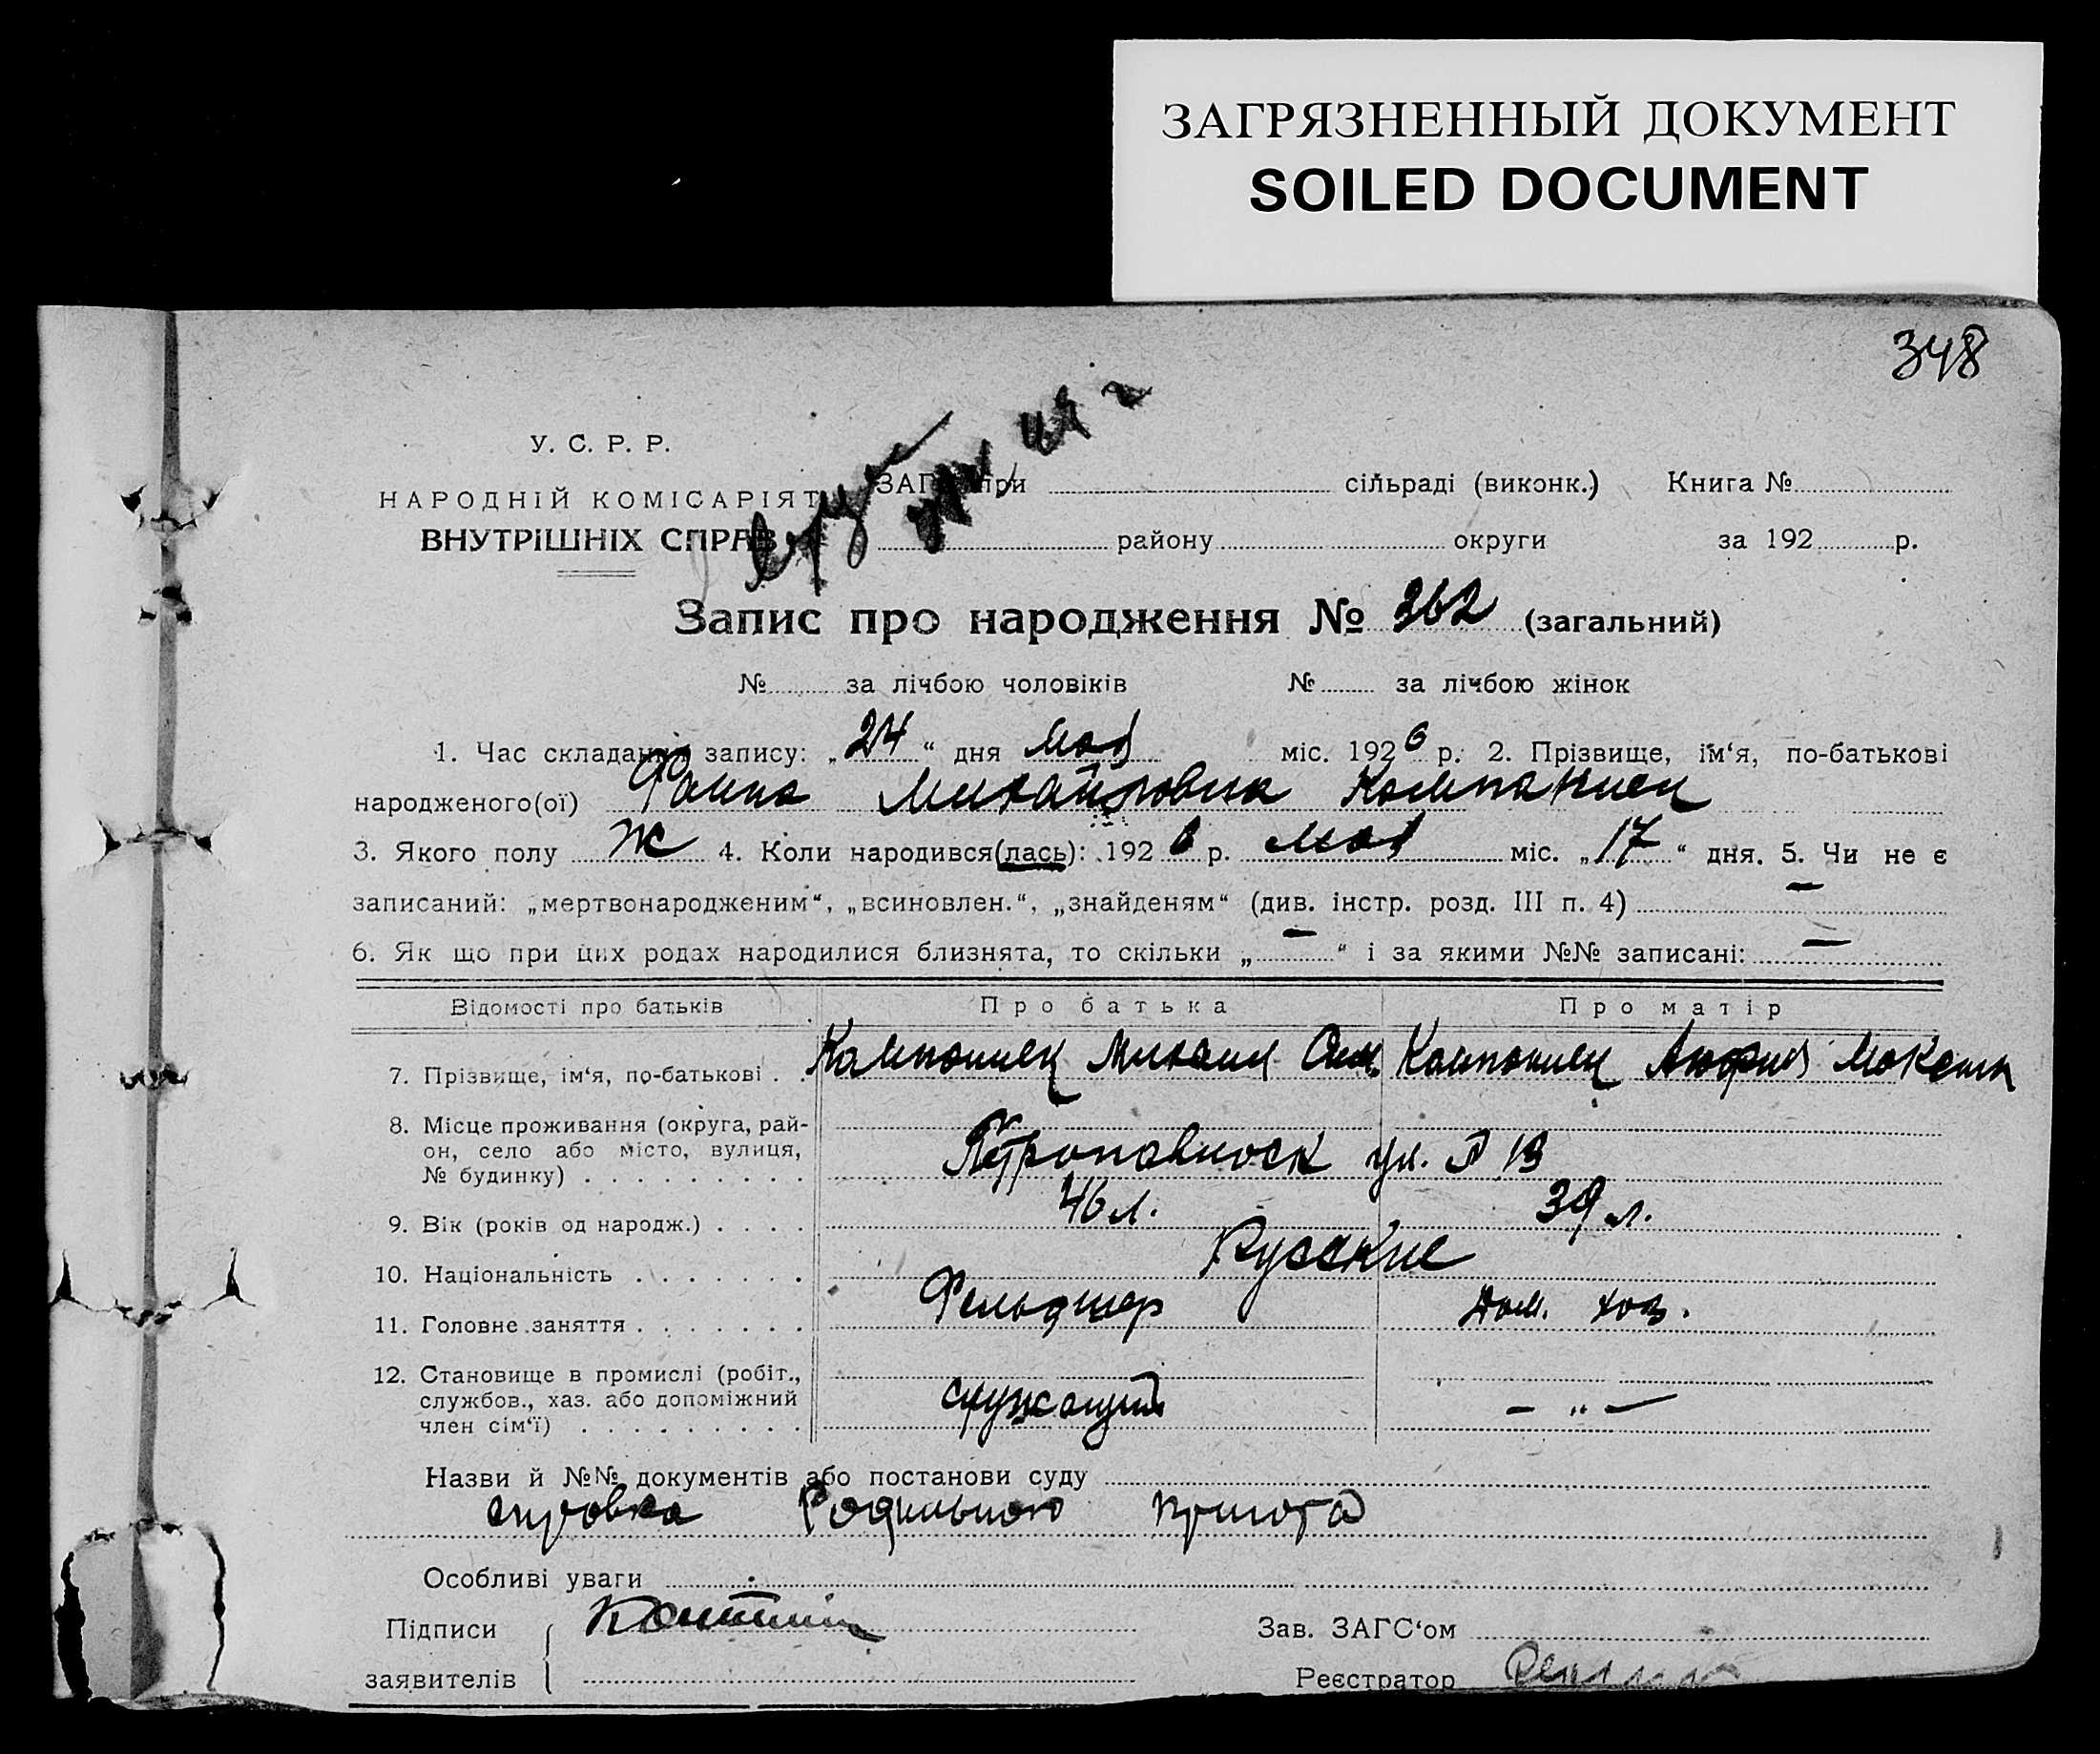 ЗАГРЯЗНЕННЫЙ ДОКУМЕНТ
SOILED DOCUMENT
348
У. С. Р. Р.
НАРОДНІЙ КОМІСАРІЯТ
ВНУТРІШНІХ СПРАВ
ЗАГС при сільраді (виконк.) Книга №
району округи за 192 р.
Запис про народження № 362 (загальний)
№ за лічбою чоловіків № за лічбою жінок
1. Час складання запису: „24“ дня мая міс. 1926 р. 2. Прізвище, ім‘я, по-батькові
народженого(ої) Фаина Михайловна Компаниец
3. Якого полу ж 4. Коли народився(лась): 1926 р. мая міс. „17“ дня. 5. Чи не є
записаний: „мертвонародженим“, „всиновлен.“, „знайденям“ (див. інстр. розд. III п. 4) —
6. Як що при цих родах народилися близнята, то скільки „—“ і за якими №№ записані: —
Відомості про батьків Про батька Про матір
7. Прізвище, ім‘я, по-батькові Компаниец Михаил Компаниец
8. Місце проживання (округа, рай-
он, село або місто, вулиця,
№ будинку) ул. 13
9. Вік (років од народж.) 46 л. 39 л.
10. Національність Русские
11. Головне заняття Фельдшер Дом. хоз.
12. Становище в промислі (робіт.,
службов., хаз. або допоміжний
член сім‘ї) служащий — „ —
Назви й №№ документів або постанови суду
справка Родильного приюта
Особливі уваги
Підписи
заявителів
Зав. ЗАГС‘ом
Реєстратор